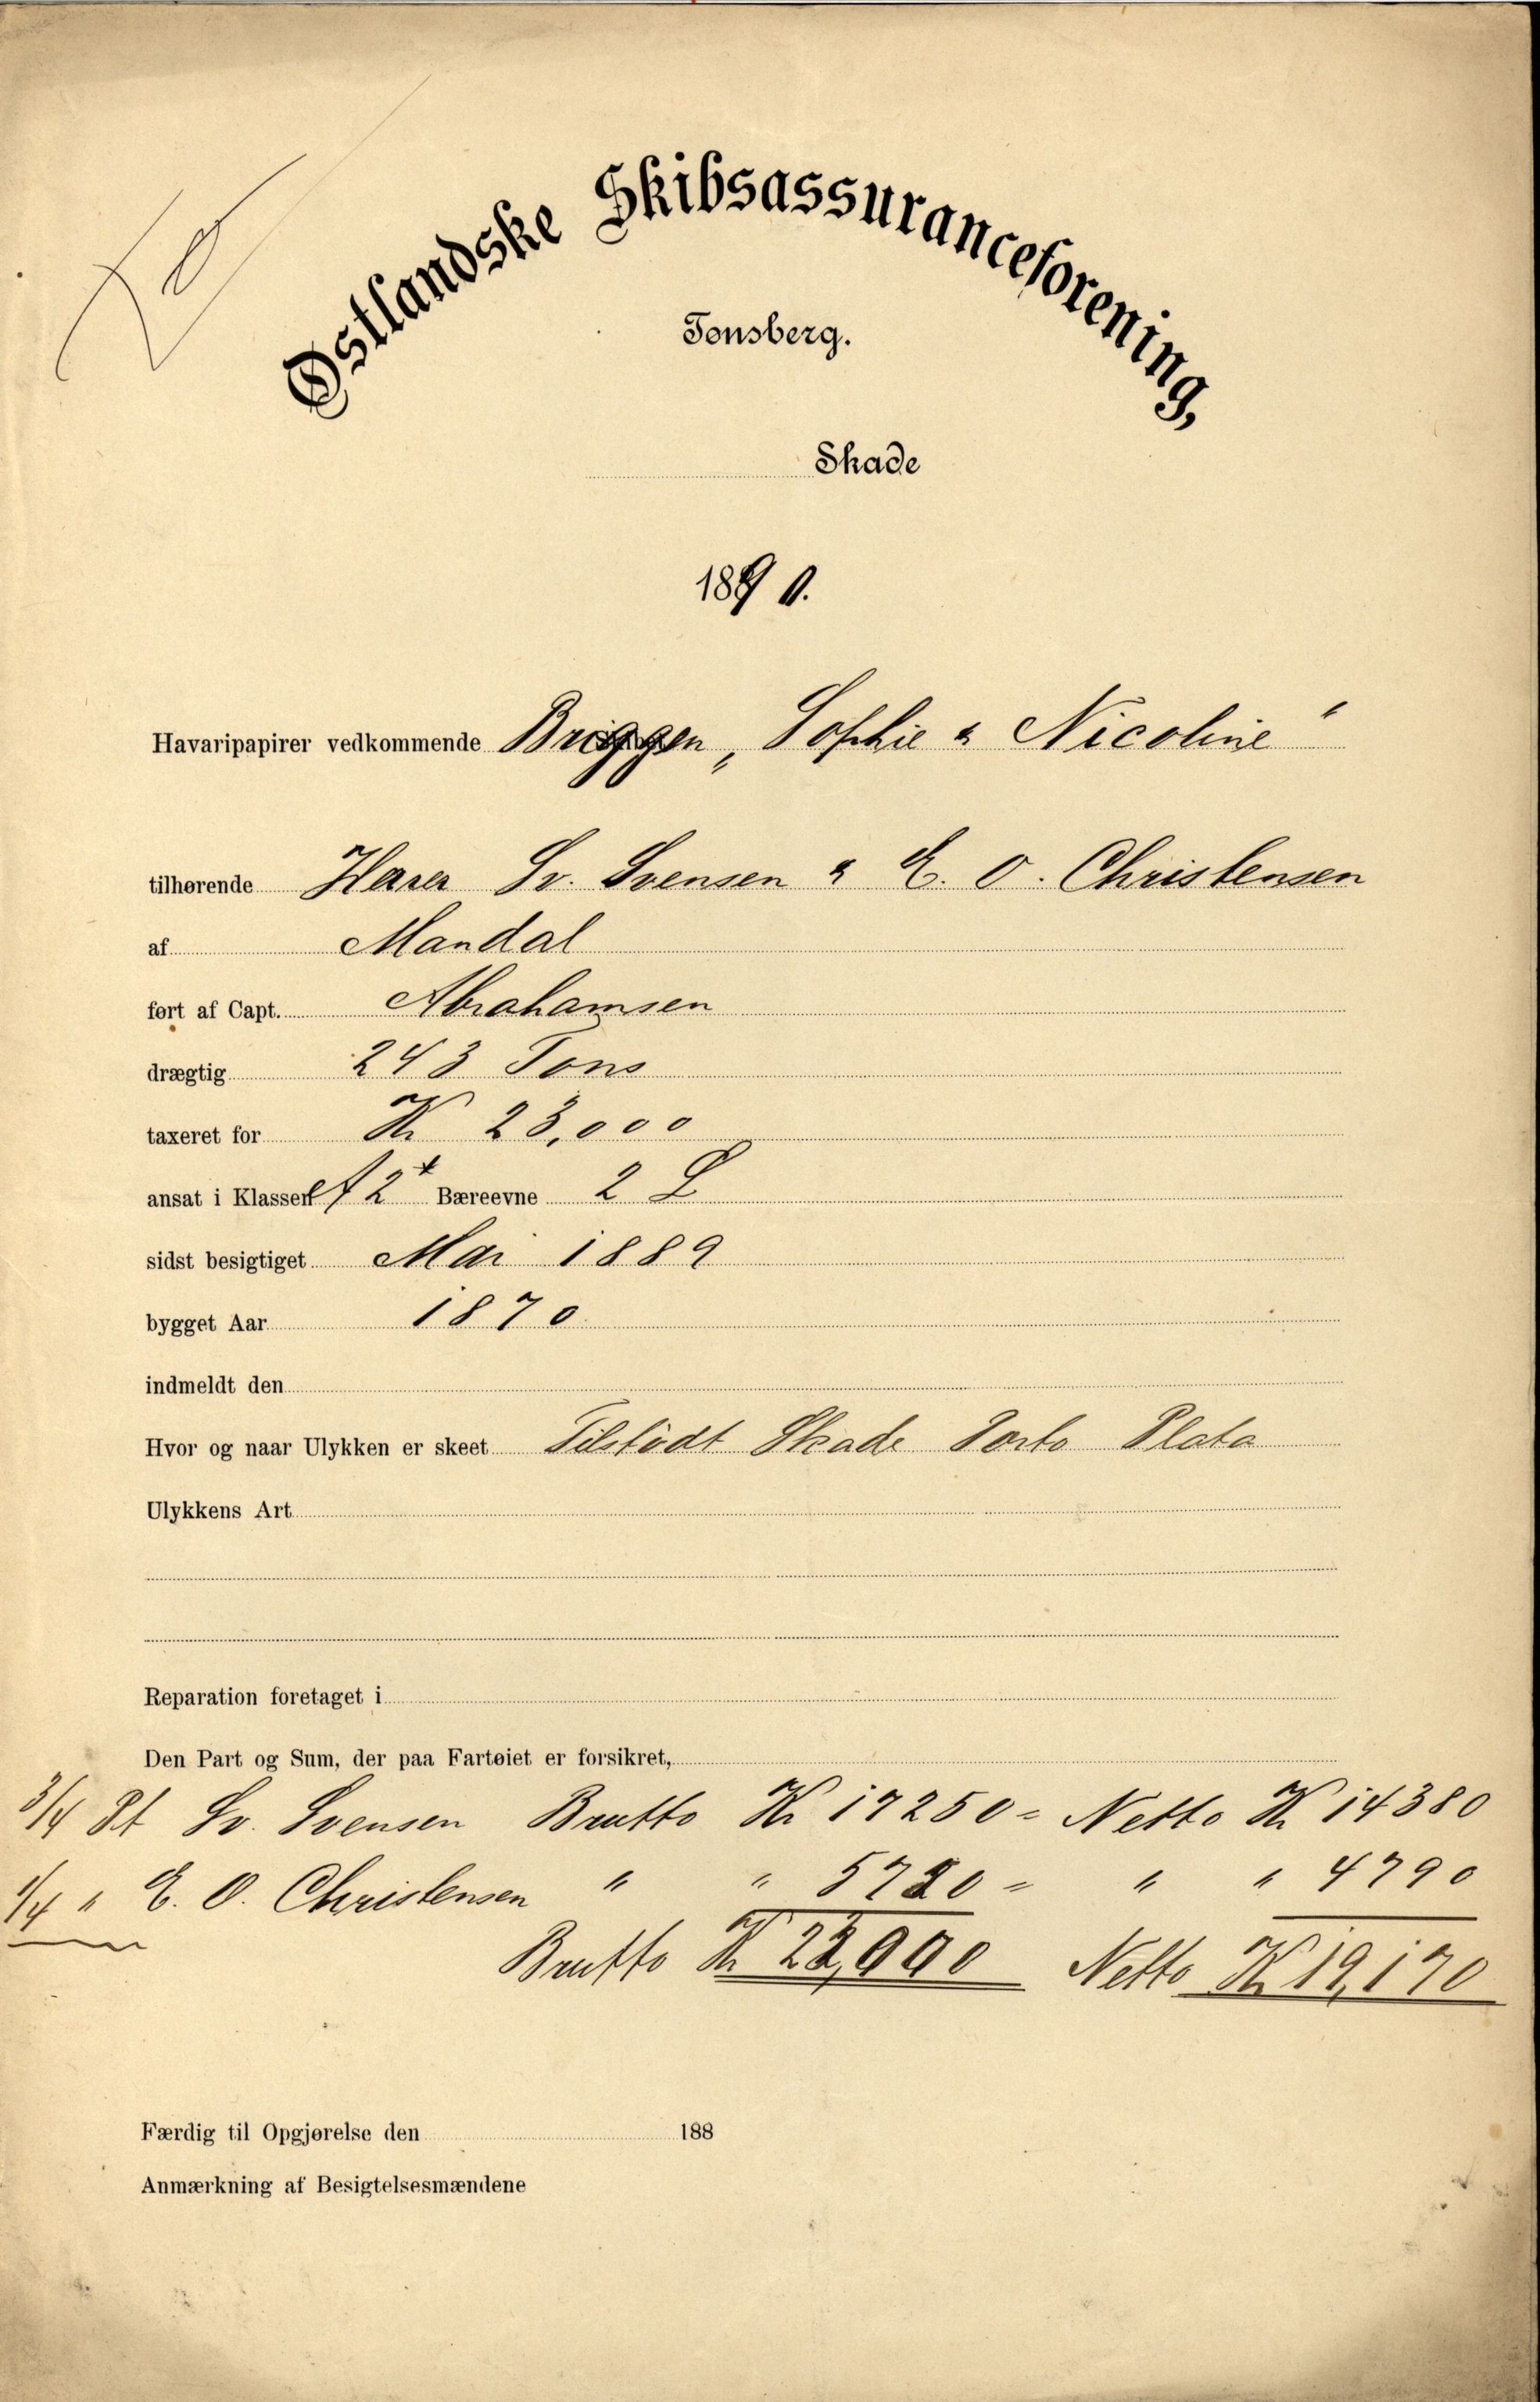 Østlandske Skibsassuranceforening,
Tønsberg.
Skade
1890.
Havaripapirer vedkommende Briggen „Sophie & Nicoline"
tilhørende Herrer Sv. Svensen & E. O. Christensen
af Mandal
ført af Capt. Abrahamsen
drægtig 243 Tons
taxeret for Kr 23,000
ansat i Klassen A 2+ Bæreevne 2 L
sidst besigtiget Mai 1889
bygget Aar 1870
indmeldt den
Hvor og naar Ulykken er skeet Tilstødt Skade Porto Plata
Ulykkens Art
Reparation foretaget i
Den Part og Sum, der paa Fartøiet er forsikret,
3/4 Pt Sv. Svensen Brutto Kr 17250 = Netto Kr 14380
1/4 " E. O. Christensen " " = " " 4790
Brutto Kr Netto Kr 19,170
Færdig til Opgjørelse den 188
Anmærkning af Besigtelsesmændene